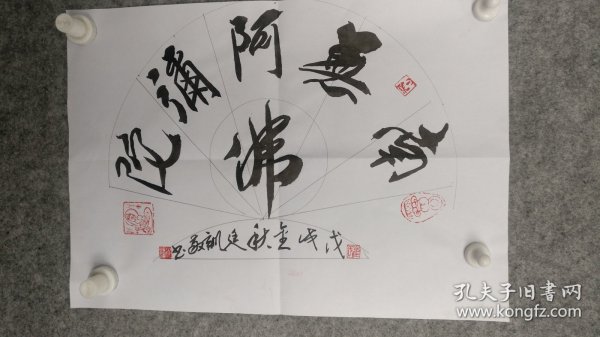 南無阿彌陀
佛
戊戌金秋
敬书
孔夫子旧书网
www.kongfz.com